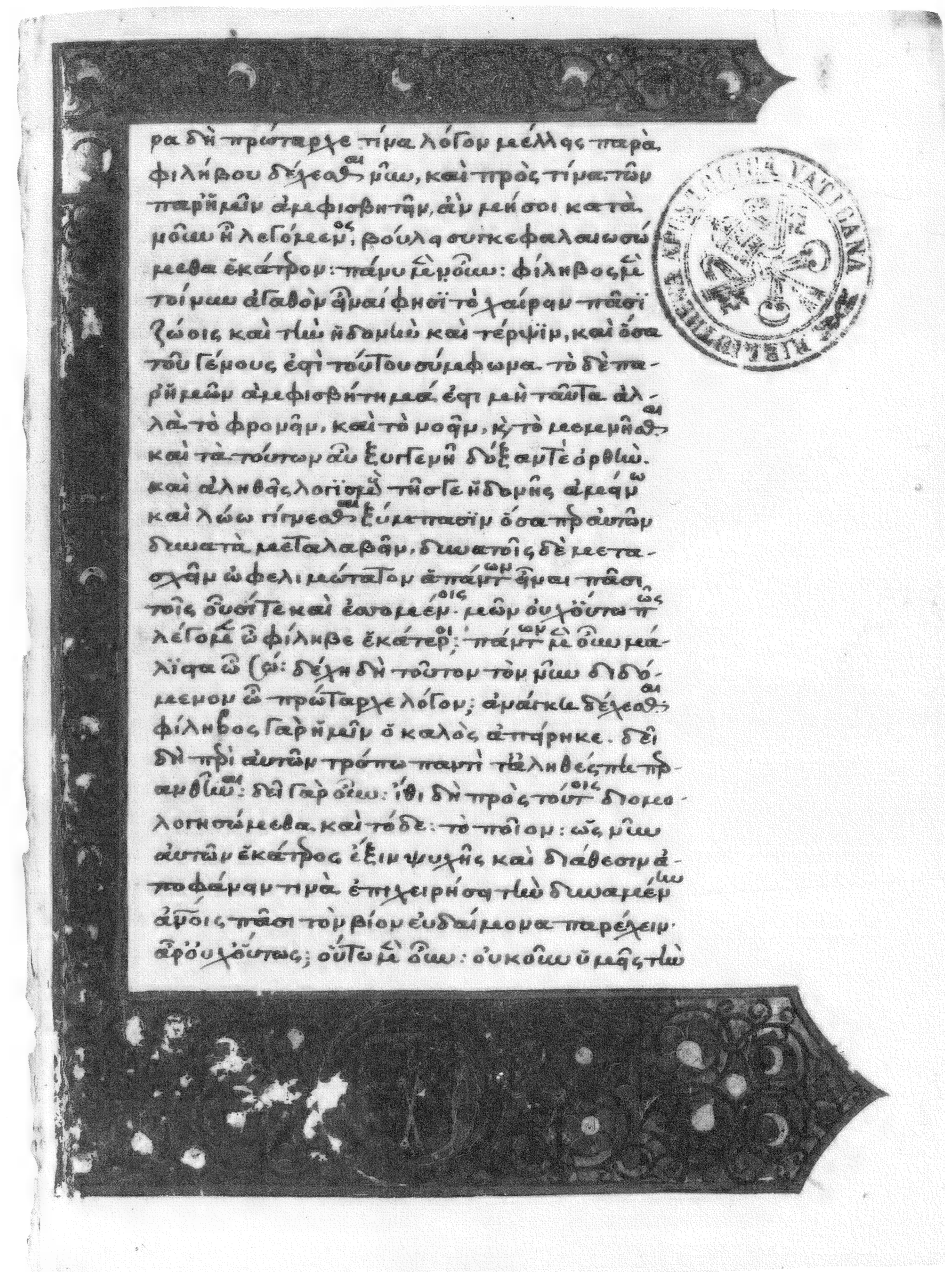 ρα δὴ πρώταρχε τίνα λόγον μέλλεις παρὰ
φιλήβου δέχεσθαι νῦν, καὶ πρὸς τίνα τῶν
παρ' ἡμῖν ἀμφισβητεῖν, ἂν μή σοι κατὰ
νοῦν ᾖ λεγόμενος, βούλει συγκεφαλαιωσώ
μεθα ἑκάτερον: πάνυ μὲν οὖν: φίληβος μὲν
τοίνυν ἀγαθὸν εἶναί φησϊ τὸ χαίρειν πᾶσϊ
ζώοις καὶ τὴν ἡδονὴν καὶ τέρψϊν, καὶ ὅσα
τοῦ γένους ἐστὶ τούτου σύμφωνα. τὸ δὲ πα-
ρ' ἡμῶν ἀμφισβήτημά ἐστι μὴ ταῦτα ἀλ-
λὰ τὸ φρονεῖν, καὶ τὸ νοεῖν, κ τὸ μεμνῆσθαι
καὶ τὰ τούτων αὖ ξυγγενῆ δόξαν τε ὀρθὴν.
καὶ ἀληθεῖς λογϊσμοὺς τῆς γε ἡδονῆς ἀμείνω
καὶ λώω γίγνεσθαι ξύμπασϊν ὅσα περ αὐτῶν
δυνατὰ μεταλαβεῖν, δυνατοῖς δὲ μετα-
σχεῖν ὠφελιμώτατον ἁπάντων εἶναι πᾶσι
τοῖς οὖσί τε καὶ ἐσομένοις. μῶν οὐχ οὕτω πως
λέγομεν ὦ φίληβε ἑκάτεροι; πάντων μὲν οὖν μά-
λϊστα ὦ σώ: δέχη δὴ τοῦτον τὸν νῦν διδό-
μενον ὦ πρώταρχε λόγον; ἀνάγκη δέχεσθαι:
φίληβος γὰρ ἡμῖν ὁ καλὸς ἀπείρηκε. δεῖ
δὴ περὶ αὐτῶν τρόπω παντὶ τἀληθές πη περ-
ανθῆναι: δεῖ γὰρ οὖν: ἴθι δὴ πρὸς τούτοις διομο-
λογησώμεθα καὶ τόδε: τὸ ποῖον: ὡς νῦν
αὐτῶν ἑκάτερος ἕξιν ψυχῆς καὶ διάθεσιν ἀ-
ποφαίνειν τινὰ ἐπιχειρήσει τὴν δυναμένην
ἀνοις πᾶσι τὸν βίον εὐδαίμονα παρέχειν.
ἆρ' οὐχ οὕτως; οὕτω μὲν οὖν: οὐκοῦν ὑμεῖς τὴν
BIBLIOTHECA APOSTOLICA VATICANA